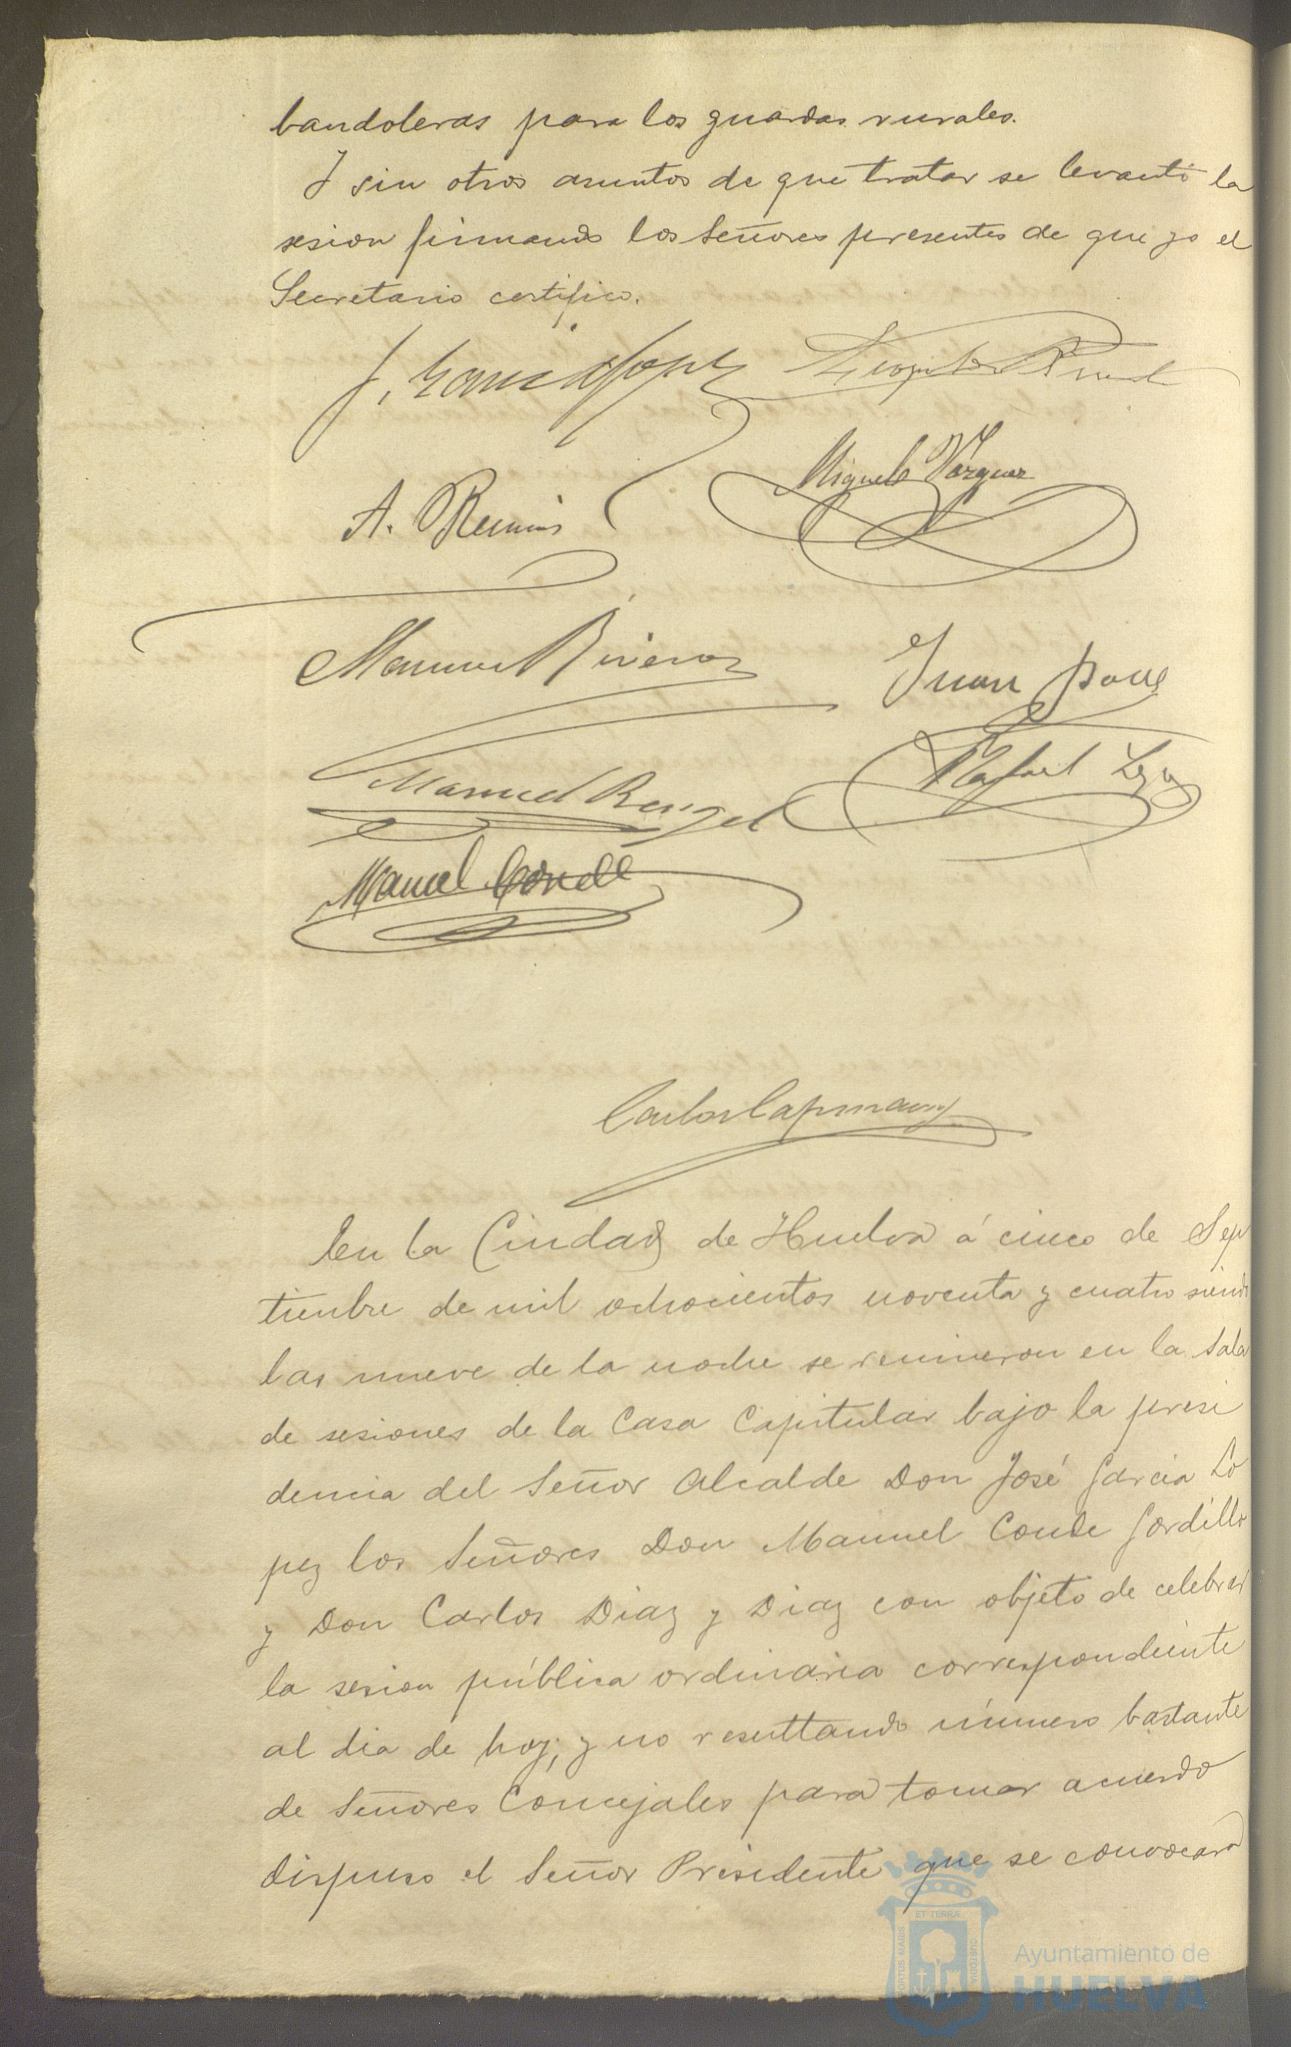 bandoleras para los guardas rurales.
Y sin otros asuntos de que tratar se levantó la
sesion firmando los Señores presentes de que yo el
Secretario certifico.
J. Garcia Lopez
A. 
Miguel Vázquez
Manuel
Juan
Manuel Rengel
Rafael
Manuel Conde
Carlos Capmany
En la Ciudad de Huelva á cinco de Sep
tiembre de mil ochocientos noventa y cuatro siendo
las nueve de la noche se reunieron en la Sala
de sesiones de la Casa Capitular bajo la presi
dencia del Señor Alcalde Don José Garcia Lo
pez los Señores Don Manuel Conde Gordillo
y Don Carlos Diaz y Diaz con objeto de celebrar
la sesion pública ordinaria correspondiente
al dia de hoy; y no resultando número bastante
de Señores Concejales para tomar acuerdo
dispuso el Señor Presidente que se convocara
Ayuntamiento de
HUELVA